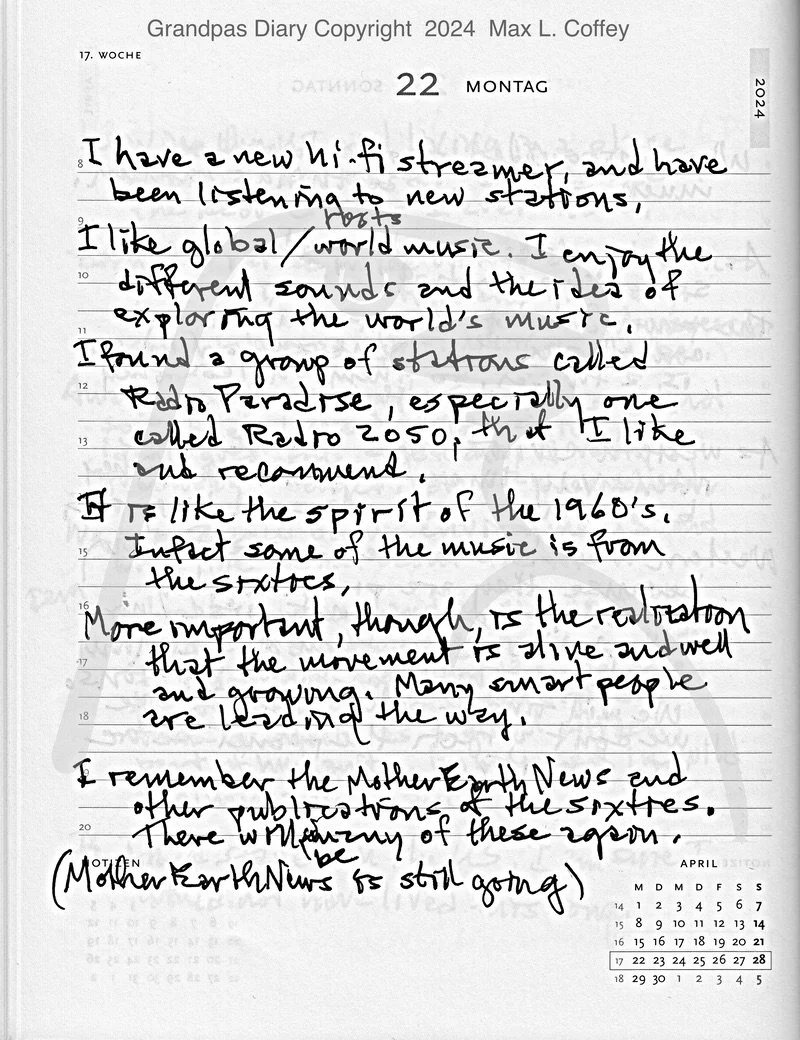 Grandpas Diary Copyright 2024 Max L. Coffey
17. WOCHE
22 MONTAG
2024
8 I have a new hi-fi streamer, and have
been listening to new stations,
9 roots
I like global/world music. I enjoy the
10 different sounds and the idea of
exploring the world's music.
11
I found a group of stations called
12 Radio Paradise, especially one
13 called Radio 2050, that I like
and recommend.
It is like the spirit of the 1960's.
15 Infact some of the music is from
the sixties,
16 More important, though, is the realization
17 that the movement is alive and well
and growing. Many smart people
18 are leading the way.
19 I remember the Mother Earth News and
other publications of the sixties.
20 There will many of these again.
be
NOTIZEN
(Mother Earth News is still going)
APRIL
M D M D F S S
14 1 2 3 4 5 6 7
15 8 9 10 11 12 13 14
16 15 16 17 18 19 20 21
17 22 23 24 25 26 27 28
18 29 30 1 2 3 4 5